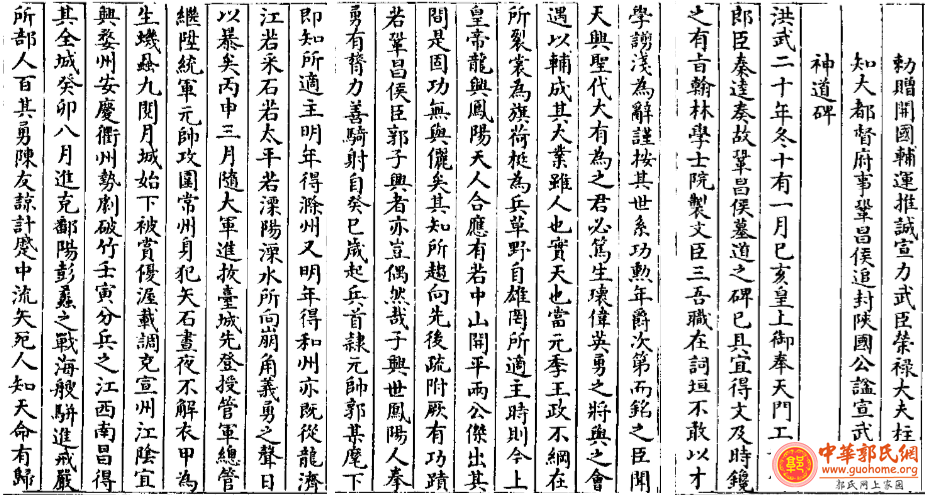 勅贈開國輔運推誠宣力武臣榮禄大夫柱
知大都督府事鞏昌侯追封陕國公諡宣武
神道碑
洪武二十年冬十有一月巳亥皇上御奉天門工
郎臣秦逵奏故鞏昌侯墓道之碑巳具宜得文及時鐫
之有㫖翰林學士院製文臣三吾職在詞垣不敢以才
學謭淺為辭謹按其世系功勲年爵次第而銘之臣聞
天興聖代大有為之君必篤生瓌偉英勇之將與之會
遇以輔成其大業雖人也實天也當元季王政不綱在
所裂裳為旗荷梃為兵草野自雄罔所適主時則今上
皇帝龍興鳳陽天人合應有若中山開平兩公傑出其
間是固功無與儷矣其知所趨向先後疏附厥有功蹟
若鞏昌侯臣郭子興者亦豈偶然哉子興世鳳陽人拳
勇有膂力善騎射自癸巳歲起兵首隸元帥郭某麾下
即知所適主明年得滁州又明年得和州亦既從龍濟
江若采石若太平若溧陽溧水所向崩角義勇之聲日
以暴矣丙申三月隨大軍進抜臺城先登授管軍總管
繼陞統軍元帥攻圍常州身犯矢石晝夜不解衣甲為
生蟣蝨九閱月城始下被賞優渥載調克宣州江陰宜
興婺州安慶衢州勢劇破竹壬寅分兵之江西南昌得
其全城癸卯八月進克鄱陽彭蠡之戰海艘駢進戒嚴
所部人百其勇陳友諒計蹙中流矢死人知天命有歸
中華郭氏網
www.guohome.org
郭氏网上家园